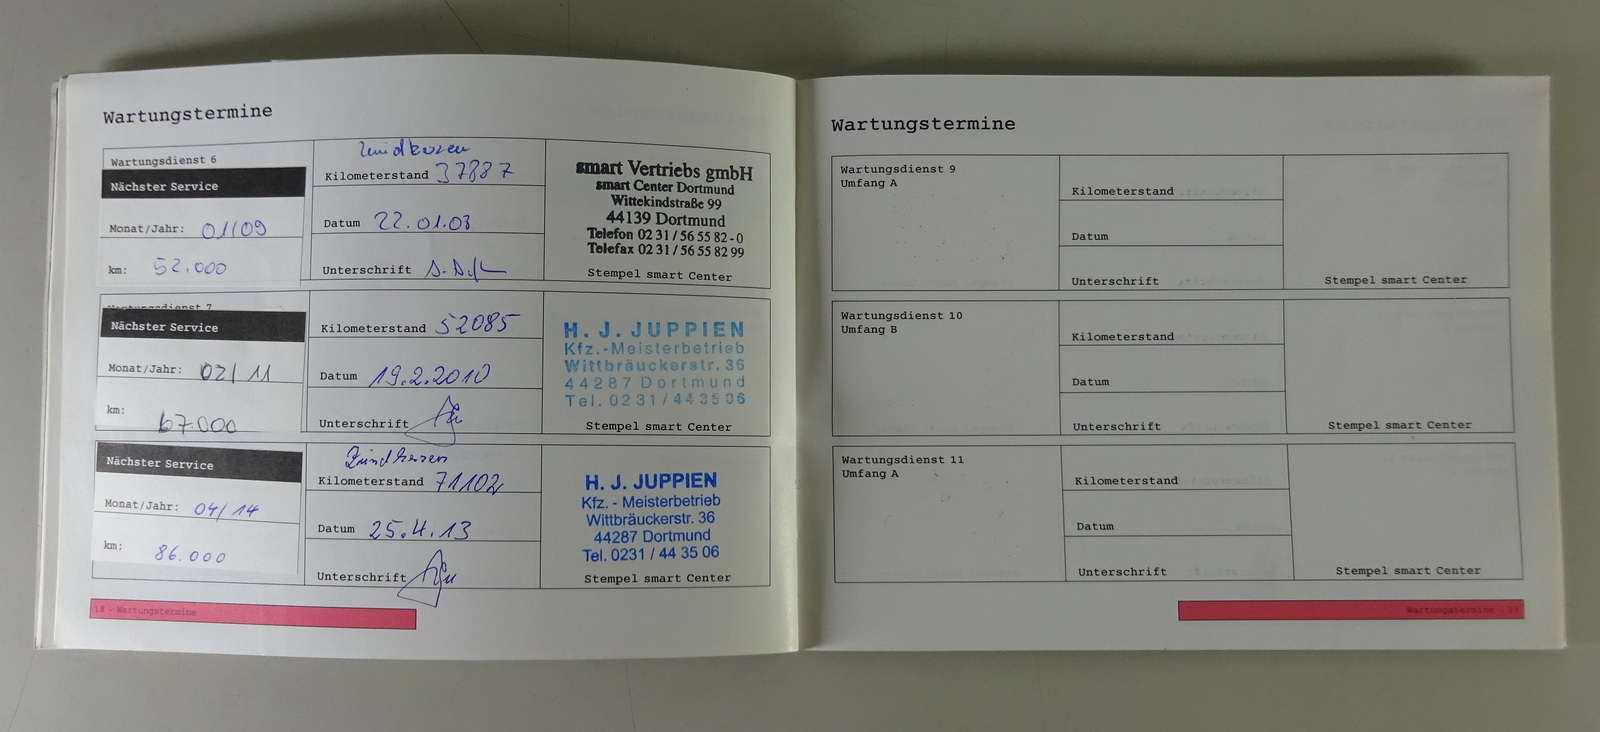 Wartungstermine
Wartungsdienst 6
Nächster Service
Monat/Jahr: 01/09
km: 52.000
Zündkerzen
Kilometerstand 37887
Datum 22.01.08
Unterschrift
smart Vertriebs gmbH
smart Center Dortmund
Wittekindstraße 99
44139 Dortmund
Telefon 02 31 / 56 55 82 - 0
Telefax 02 31 / 56 55 82 99
Stempel smart Center
Wartungsdienst 7
Nächster Service
Monat/Jahr: 02/11
km: 67000
Kilometerstand 52085
Datum 19.2.2010
Unterschrift
H. J. JUPPIEN
Kfz.-Meisterbetrieb
Wittbräuckerstr. 36
44287 Dortmund
Tel. 0231/443506
Stempel smart Center
Nächster Service
Monat/Jahr: 04/14
km: 86.000
Zündkerzen
Kilometerstand 71102
Datum 25.4.13
Unterschrift
H. J. JUPPIEN
Kfz. - Meisterbetrieb
Wittbräuckerstr. 36
44287 Dortmund
Tel. 0231 / 44 35 06
Stempel smart Center
18 - Wartungstermine
Wartungstermine
Wartungsdienst 9
Umfang A
Kilometerstand
Datum
Unterschrift
Stempel smart Center
Wartungsdienst 10
Umfang B
Kilometerstand
Datum
Unterschrift
Stempel smart Center
Wartungsdienst 11
Umfang A
Kilometerstand
Datum
Unterschrift
Stempel smart Center
Wartungstermine - 19